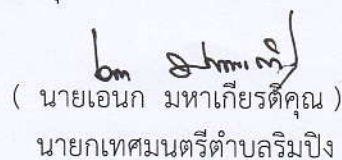 ( นายเอนก มหาเกียรติคุณ )
นายกเทศมนตรีตำบลริมปิง